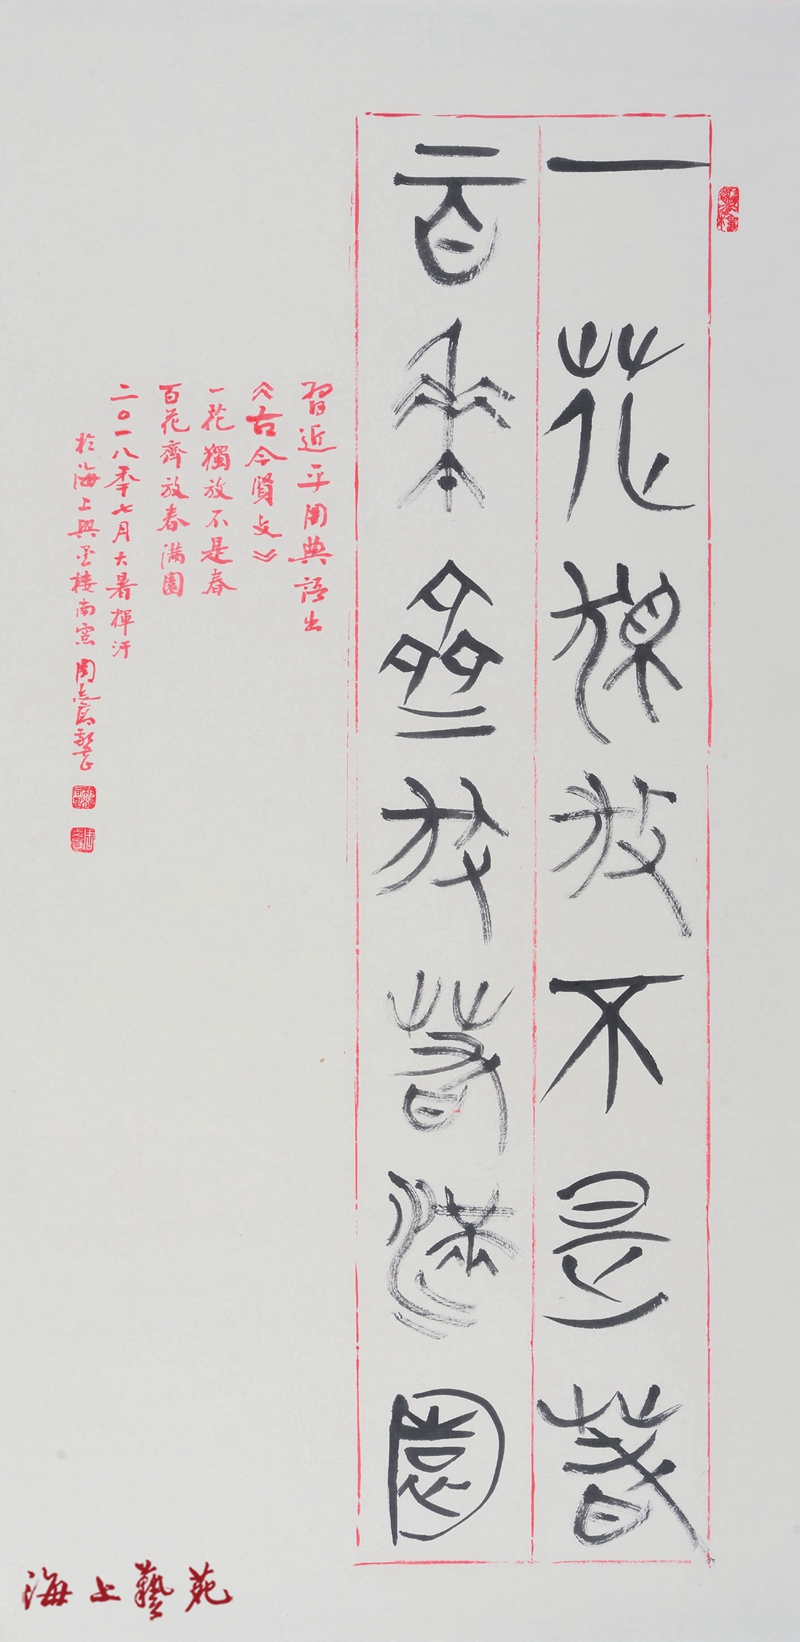 一花獨放不是春
百花齊放春滿園
習近平用典語出
《古今賢文》
一花獨放不是春
百花齊放春滿園
二〇一八年七月大暑揮汗
於海上興墨樓南窓周
海上藝苑